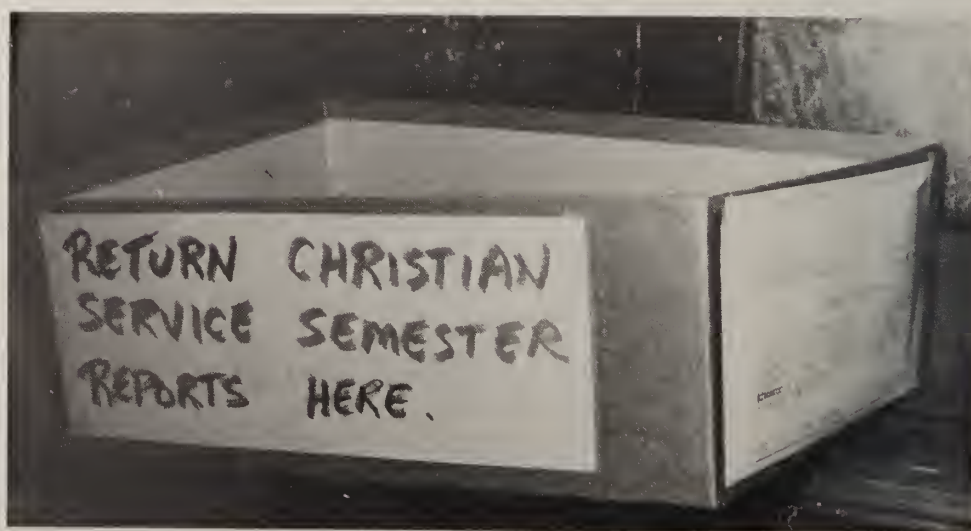 RETURN CHRISTIAN
SERVICE SEMESTER
REPORTS HERE.